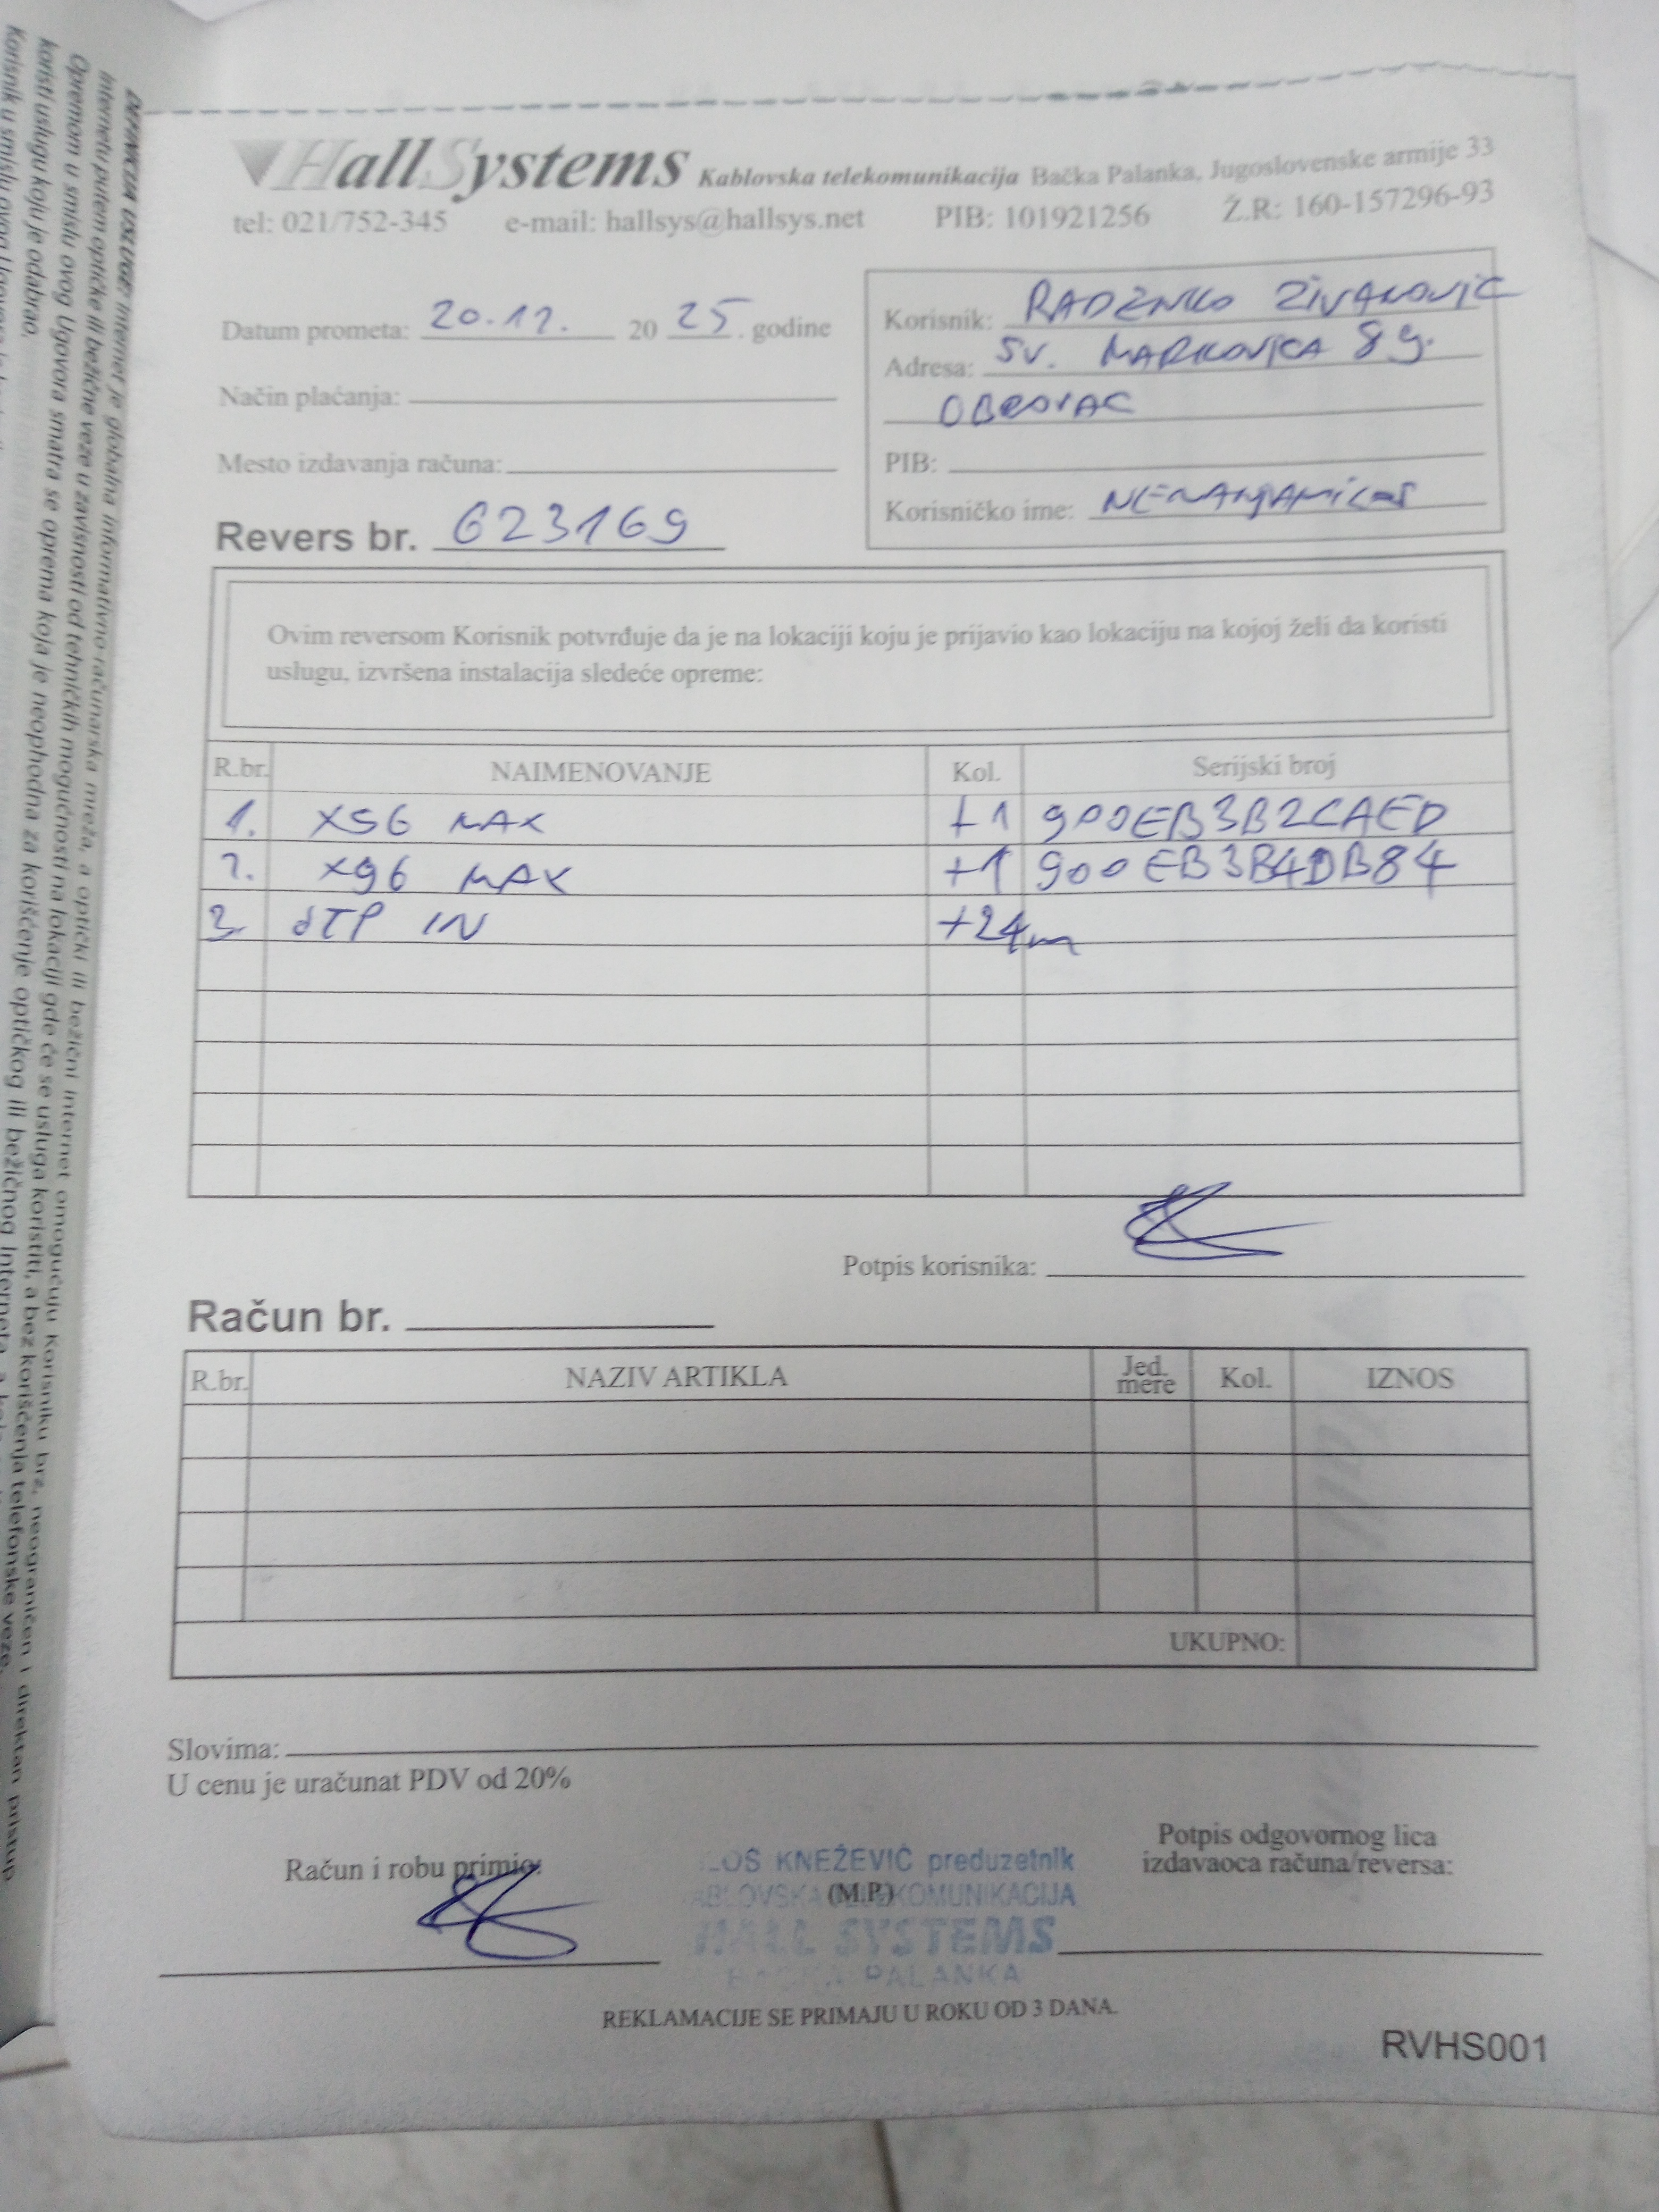 DEFINICIJA USLUGE: Internet je globalna informativno-računarska mreža, a optički ili bežični Internet omogućuju Korisniku brz, neograničen i direktan pristup
Internetu putem optičke ili bežične veze u zavisnosti od tehničkih mogućnosti na lokaciji gde će se usluga koristiti, a bez korišćenja telefonske veze.
Opremom u smislu ovog Ugovora smatra se oprema koja je neophodna za korišćenje optičkog ili bežičnog Interneta, a
koristi uslugu koju je odabrao.
Korisnik u smislu ovog Ugovora
HallSystems Kablovska telekomunikacija Bačka Palanka, Jugoslovenske armije 33
tel: 021/752-345 e-mail: hallsys@hallsys.net PIB: 101921256 Ž.R: 160-157296-93
Datum prometa: 20.12. 20 25. godine
Način plaćanja:
Mesto izdavanja računa:
Revers br. 623169
Korisnik: RADENKO ZIVANOVIC
Adresa: SV. MARKOVICA 89.
OBROVAC
PIB:
Korisničko ime:
Ovim reversom Korisnik potvrđuje da je na lokaciji koju je prijavio kao lokaciju na kojoj želi da koristi
uslugu, izvršena instalacija sledeće opreme:
R.br. NAIMENOVANJE Kol. Serijski broj
1. X96 MAX +1 900EB3B2CAED
2. X96 MAX +1 900EB3B4DB84
3. STP IN +24m
Potpis korisnika:
Račun br.
R.br. NAZIV ARTIKLA Jed. mere Kol. IZNOS
UKUPNO:
Slovima:
U cenu je uračunat PDV od 20%
Račun i robu primio:
LOŠ KNEŽEVIĆ preduzetnik
(M.P.)
ABLOVSKA TELEKOMUNIKACIJA
HALL SYSTEMS
BAČKA PALANKA
Potpis odgovornog lica
izdavaoca računa/reversa:
REKLAMACIJE SE PRIMAJU U ROKU OD 3 DANA.
RVHS001